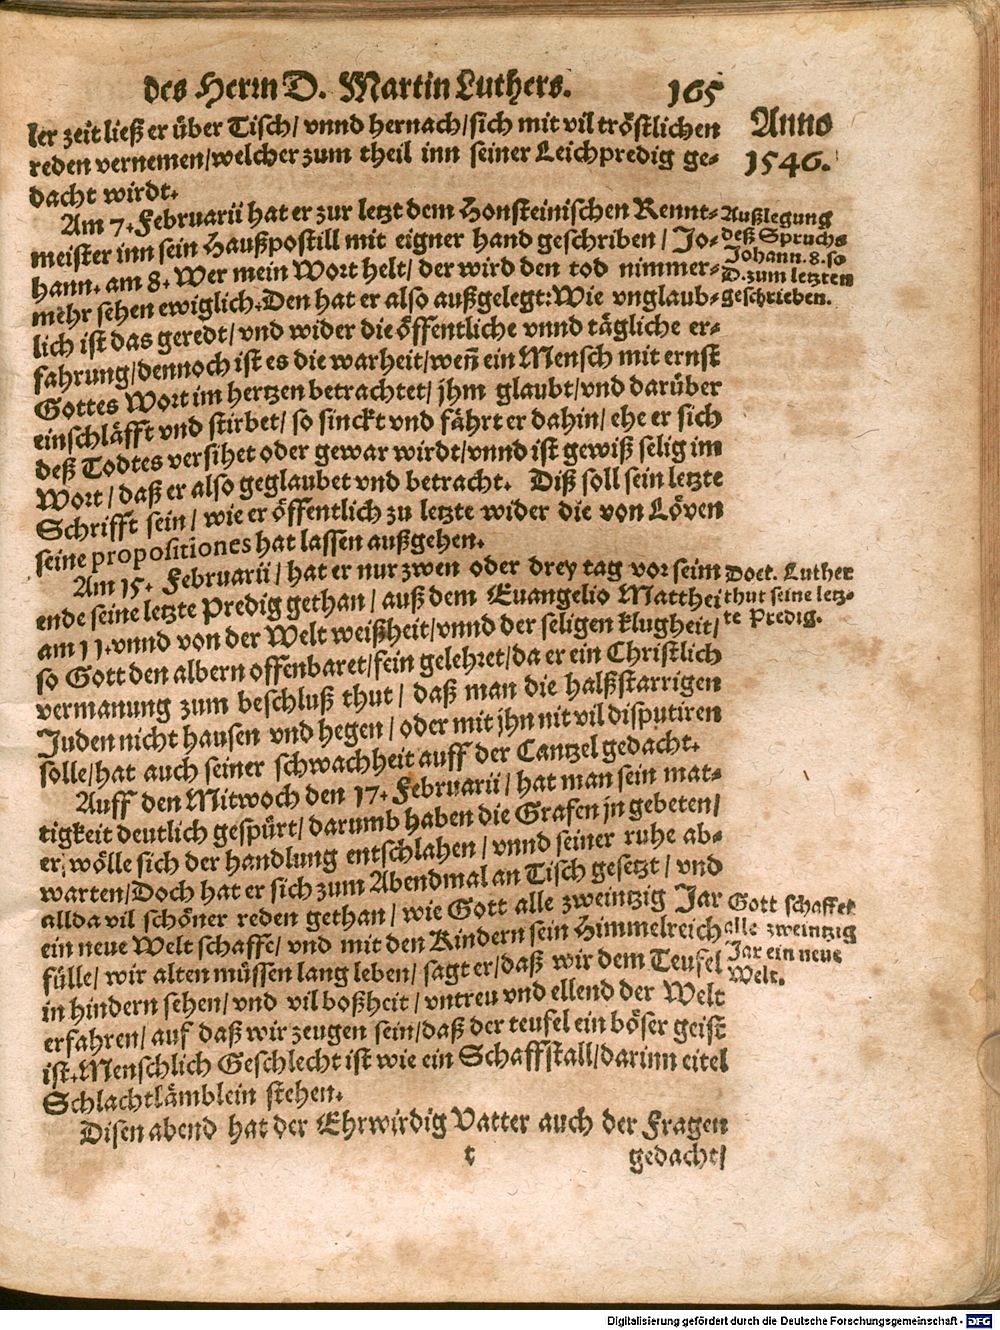 des Herrn D. Martin Luthers. 165
Anno
1546.
ler zeit ließ er über Tisch/ vnnd hernach/ sich mit vil tröstlichen
reden vernemen/ welcher zum theil inn seiner Leichpredig ge-
dacht wirdt.
Am 7. Februarii hat er zur letzt dem Honsteinischen Rennt-
meister inn sein Haußpostill mit eigner hand geschriben/ Jo-
hann. am 8. Wer mein Wort helt/ der wird den tod nimmer-
mehr sehen ewiglich. Den hat er also außgelegt: Wie vnglaub-
lich ist das geredt/ vnd wider die öffentliche vnnd tägliche er-
fahrung/ dennoch ist es die warheit/ weñ ein Mensch mit ernst
Gottes Wort im hertzen betrachtet/ jhm glaubt/ vnd darüber
einschläfft vnd stirbet/ so sinckt vnd fährt er dahin/ ehe er sich
deß Todtes versihet oder gewar wirdt/ vnnd ist gewiß selig im
Wort/ daß er also geglaubet vnd betracht. Diß soll sein letzte
Schrifft sein/ wie er öffentlich zu letzte wider die von Löven
seine propositiones hat lassen außgehen.
Außlegung
deß Spruchs
Johann. 8. so
D. zum letzten
geschrieben.
Am 15. Februarii/ hat er nur zwen oder drey tag vor seim
ende seine letzte Predig gethan/ auß dem Euangelio Matthei
am 11. vnnd von der Welt weißheit/ vnnd der seligen klugheit/
so Gott den albern offenbaret/ fein gelehret/ da er ein Christlich
vermanung zum beschluß thut/ daß man die halßstarrigen
Juden nicht hausen vnd hegen/ oder mit jhn nit vil disputiren
solle/ hat auch seiner schwachheit auff der Cantzel gedacht.
Doct. Luther
thut seine letz-
te Predig.
Auff den Mitwoch den 17. Februarii/ hat man sein mat-
tigkeit deutlich gespürt/ darumb haben die Grafen jn gebeten/
er wölle sich der handlung entschlahen/ vnnd seiner ruhe ab-
warten/ Doch hat er sich zum Abendmal an Tisch gesetzt/ vnd
allda vil schöner reden gethan/ wie Gott alle zweintzig Jar
ein neue Welt schaffe/ vnd mit den Kindern sein Himmelreich
fülle/ wir alten müssen lang leben/ sagt er/ daß wir dem Teufel
in hindern sehen/ vnd vil boßheit/ vntreu vnd ellend der Welt
erfahren/ auf daß wir zeugen sein/ daß der teufel ein böser geist
ist. Menschlich Geschlecht ist wie ein Schaffstall/ darinn eitel
Schlachtlämblein stehen.
Gott schaffet
alle zweintzig
Jar ein neue
Welt.
Disen abend hat der Ehrwirdig Vatter auch der Fragen
t gedacht/
Digitalisierung gefördert durch die Deutsche Forschungsgemeinschaft - DFG